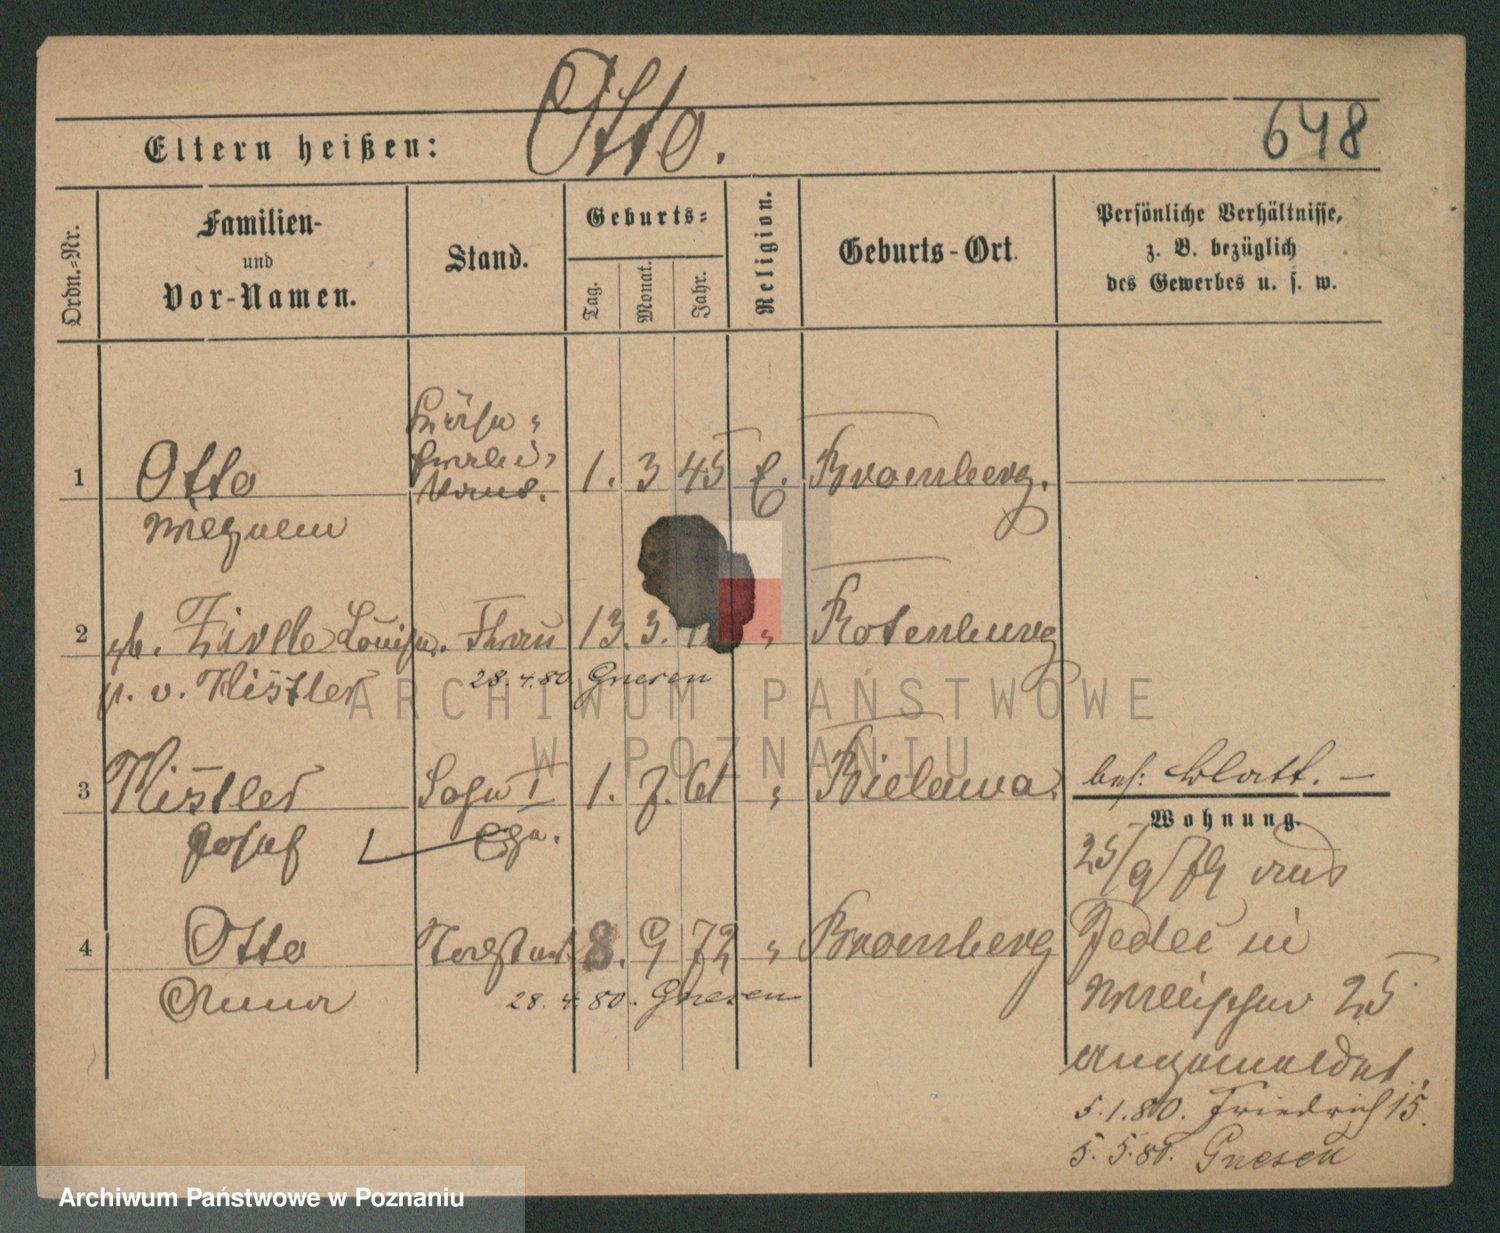 Otto.
648
Eltern heißen:
Ordn.=Nr.
Familien-
und
Vor-Namen.
Stand.
Geburts=
Tag.
Monat.
Jahr.
Religion.
Geburts-Ort.
Persönliche Verhältnisse,
z. B. bezüglich
des Gewerbes u. s. w.
1 Otto 1. 3 45 E. Bromberg.
2 Louise. Frau 13. 3. " Rotenburg
p. v. Kistler 28.4.80 Gnesen
3 Kistler Sohn I 1. 7. 61 " Bielawa.
bes: Blatt. —
Josef Ehe.
Wohnung.
25/9 79 aus
4 Otto 8. 9 72 " Bromberg
in
Anna 28.4.80. Gnesen
25
angemeldet.
5.1.80. Friedrich 15.
5. 5. 80. Gnesen
ARCHIWUM PAŃSTWOWE
W POZNANIU
Archiwum Państwowe w Poznaniu